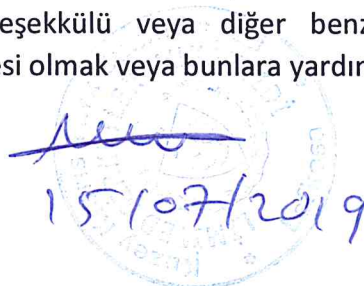 eşekkülü veya diğer benz
esi olmak veya bunlara yardır
15/07/2019